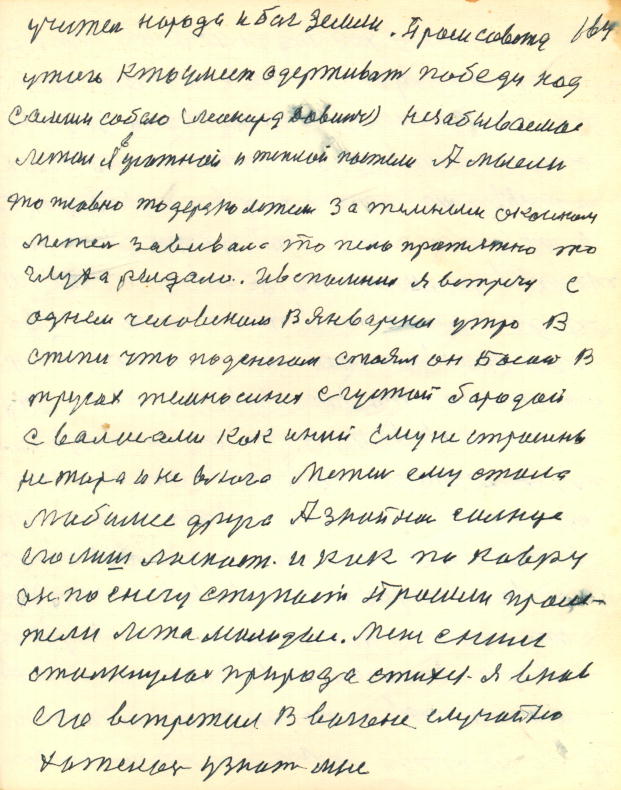 учител народа и бог Земли. Происовета 164
у того кто умеет одерживат победы над
самим собою (Леонард ) Незабываемое
летом Я в уютной и теплой постели А мысли
то плавно то дерзко летели За темным окошком
метел завивала то пела протяжно то
глухо рыдало. И вспомнил я встречу с
одним человеком В январское утро В
степи что под снегом стоял он Босой В
трусах темносиних с густой бородой
с волосами как иний Ему не страшны
не жара и не влага Метел ему стала
любимее друга А знойное солнце
его лиш ласкает. и как по ковру
он по снегу ступает Прошли проле-
тели лета молодые. Меня с ним
столкнула природа стихея. Я внов
его встретил В вагоне случайно
хотелос узнат мне